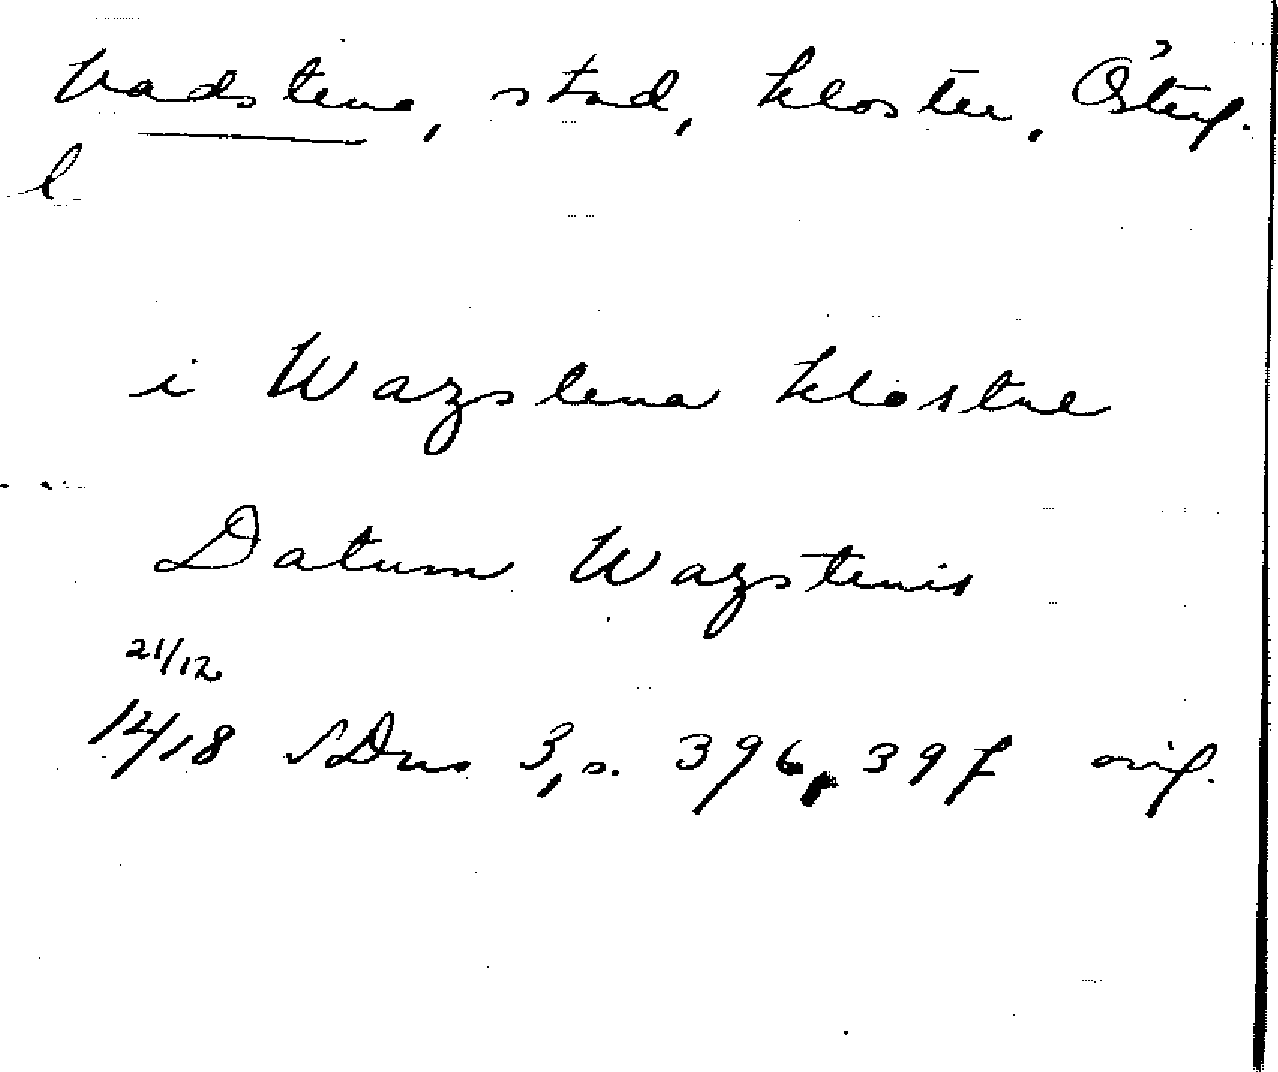 Vadstena, stad, kloster, Österg.
l
i Wazstena klostre
Datum Wazstenis
21/12
1418 SDns 3, s. 396, 397 orig.